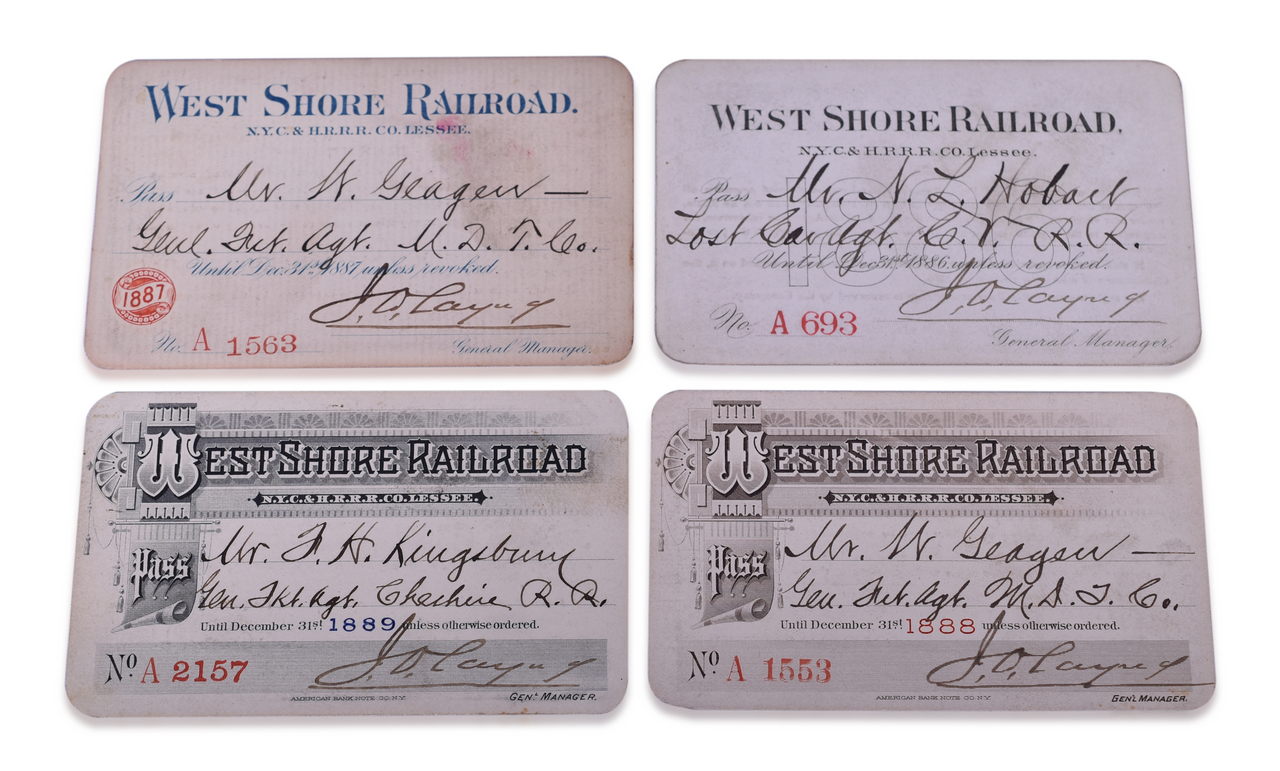 WEST SHORE RAILROAD.
N.Y.C. & H.R.R.R. CO. LESSEE.
Pass Mr. W. Geagen —
Genl. Frt. Agt. M. D. T. Co.
Until Dec. 31st 1887 unless revoked.
1887
J. D. Layng
No. A 1563
General Manager.
WEST SHORE RAILROAD,
N.Y.C. & H.R.R.R. CO. Lessee.
Pass Mr. N. L. Hobart
Lost Car Agt. C. V. R. R.
1886
Until Dec. 31st 1886 unless revoked.
J. D. Layng
No. A 693
General Manager.
WEST SHORE RAILROAD
N.Y.C. & H.R.R.R. CO. LESSEE.
Pass Mr. F. H. Kingsbury
Gen. Fkt. Agt. Cheshire R. R.
Until December 31st 1889 unless otherwise ordered.
No A 2157
J. D. Layng
AMERICAN BANK NOTE CO. N.Y.
GENL. MANAGER.
WEST SHORE RAILROAD
N.Y.C. & H.R.R.R. CO. LESSEE.
Pass Mr. W. Geagen —
Gen. Frt. Agt. M. D. T. Co.
Until December 31st 1888 unless otherwise ordered.
No A 1553
J. D. Layng
AMERICAN BANK NOTE CO. N.Y.
GENL. MANAGER.